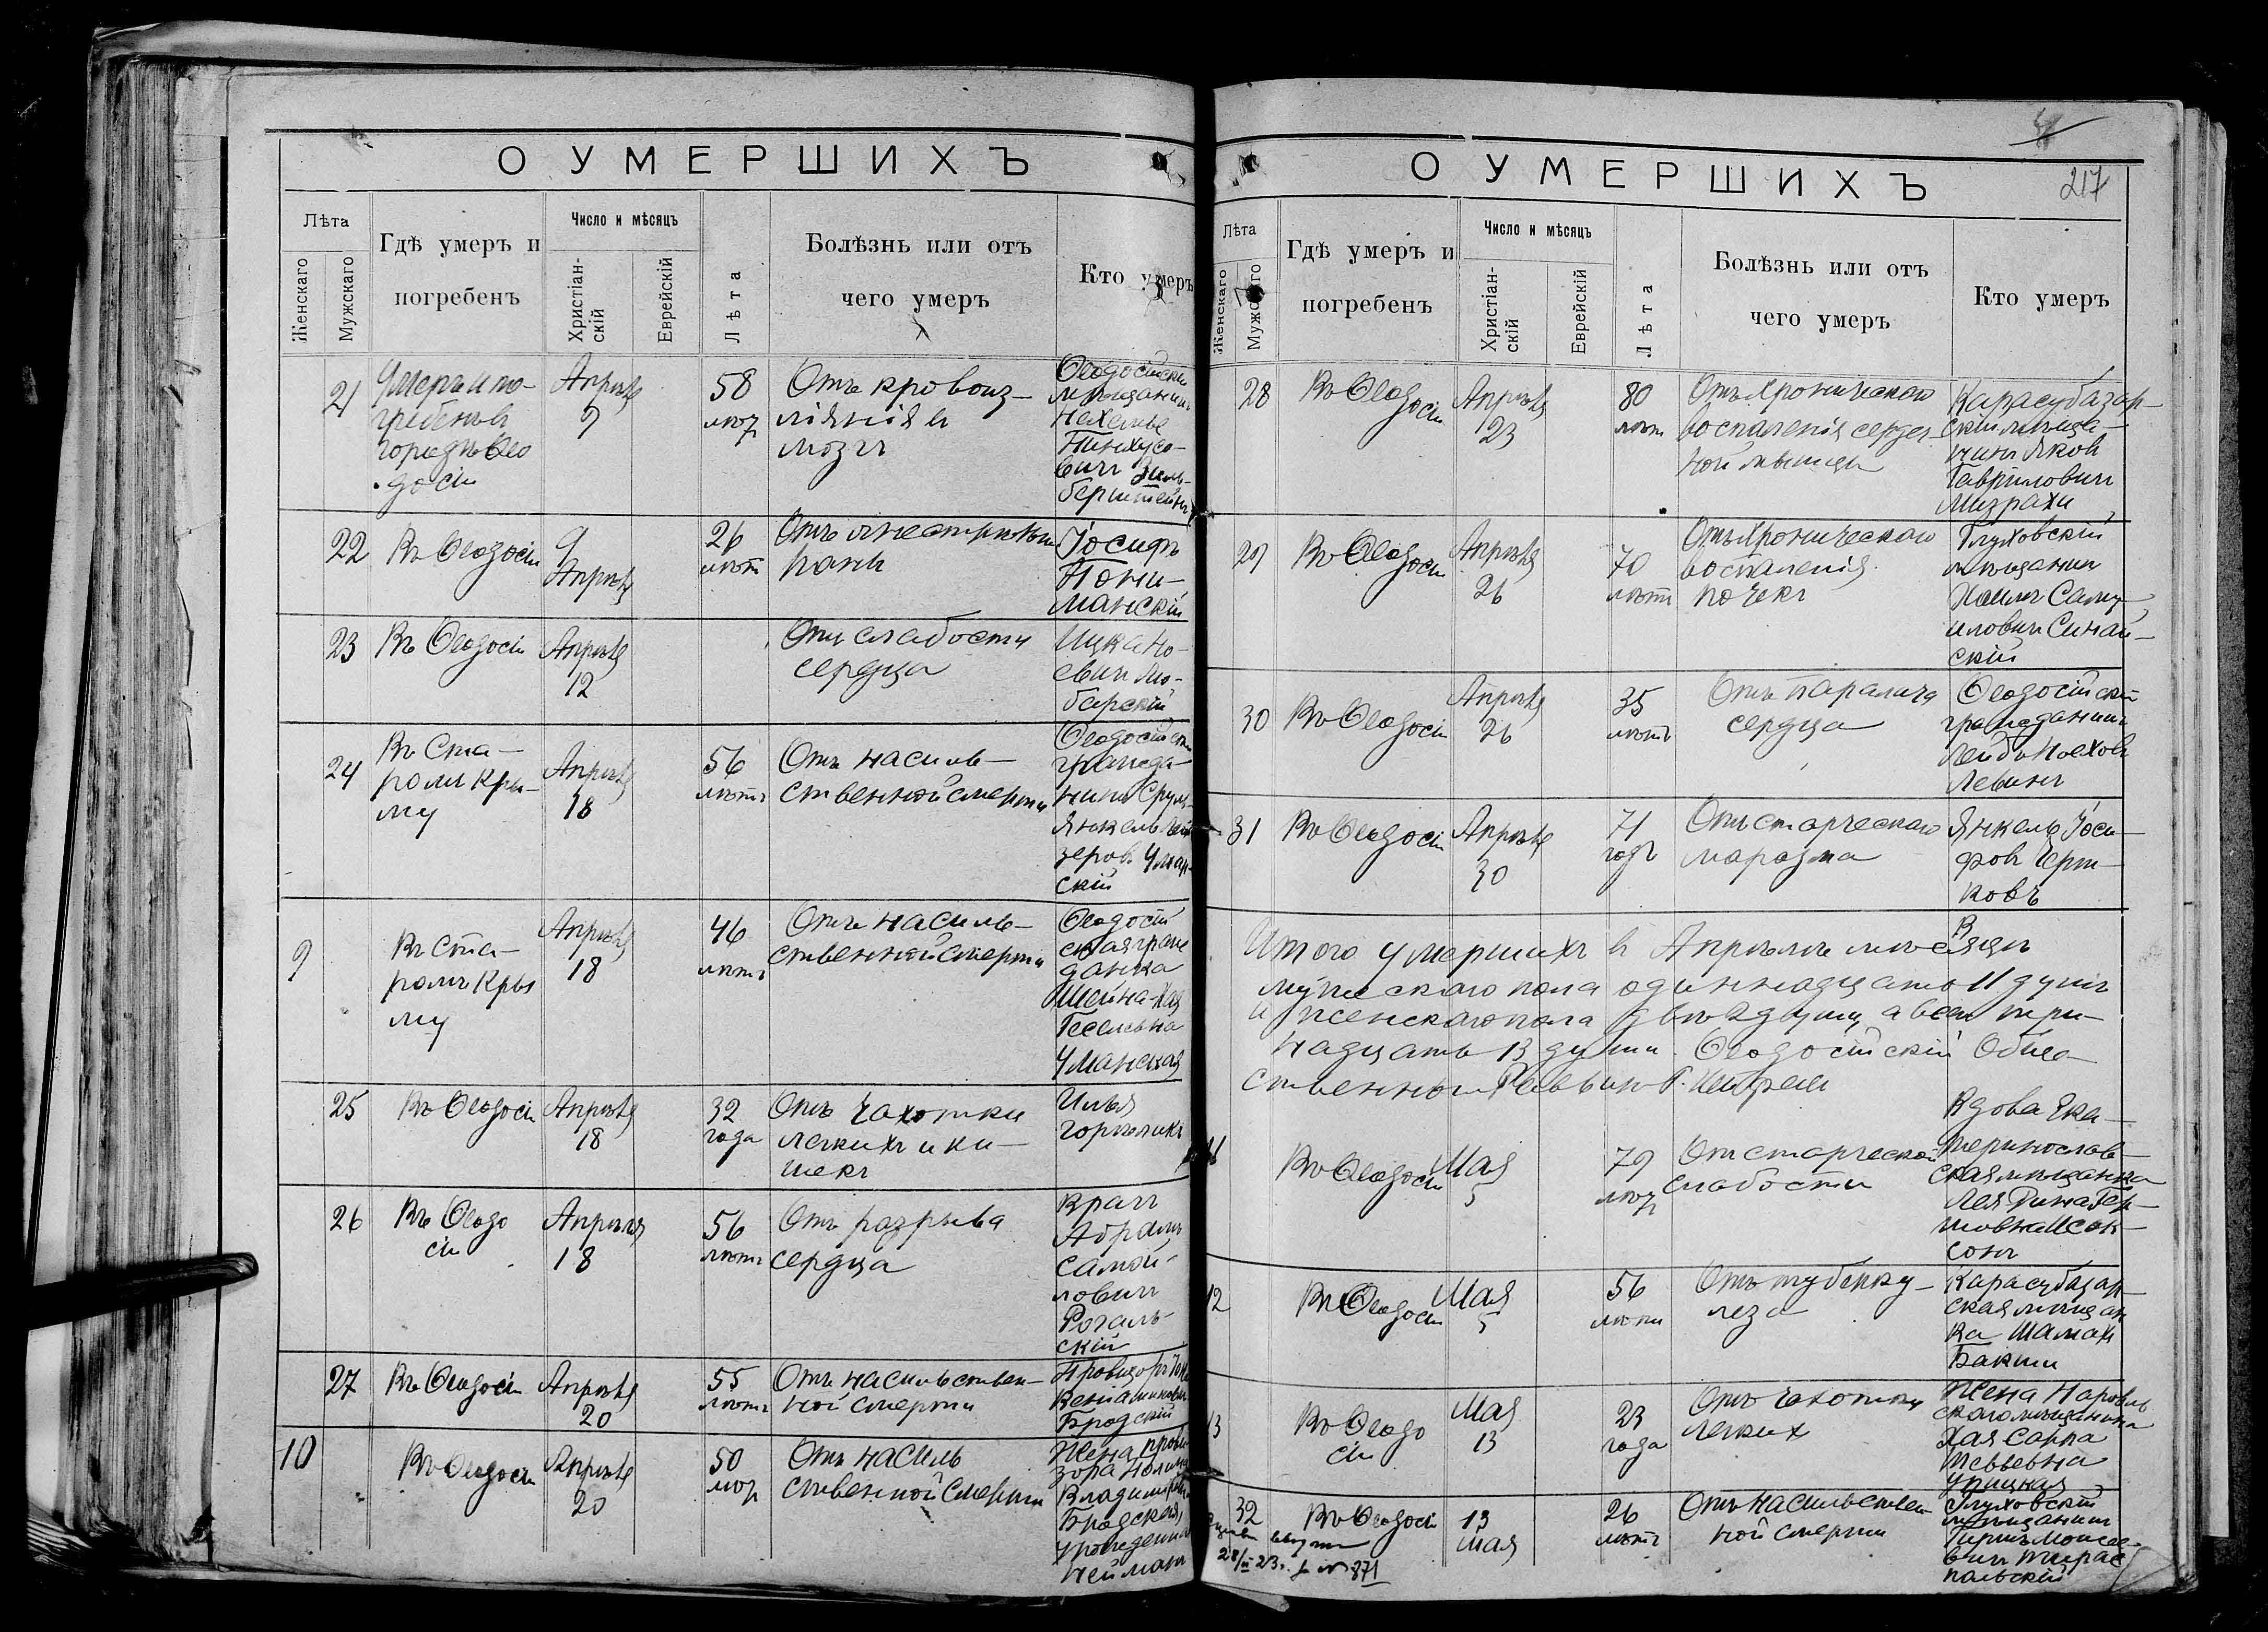 О УМЕРШИХЪ
Лѣта
Женскаго
Мужскаго
Гдѣ умеръ и
погребенъ
Число и мѣсяцъ
Христіан-
скій
Еврейскій
Лѣта
Болѣзнь или отъ
чего умеръ
Кто умеръ
21
Умеръ и по-
гребенъ въ
городѣ Ѳео
досіи
Апрѣля
9
58
лѣт
Отъ кровоиз-
ліянія въ
мозгъ
Ѳеодосійскій
мѣщанинъ
Нехемье
Пинхусо-
вичъ Зиль-
берштейнъ
22
Въ Ѳеодосіи
9
Апрѣля
26
лѣтъ
Отъ огнестрѣльн
раны
Іосифъ
Пони-
манскій
23
Въ Ѳеодосіи
Апрѣля
12
Отъ слабости
сердца
Ицка Но-
евичъ Лю-
барскій
24
Въ Ста-
ромъ Кры-
му
Апрѣля
18
56
лѣтъ
Отъ насиль-
ственной смерти
Ѳеодосійскій
гражда-
нинъ Сруль-
Янкель Лей
зеровъ Уман-
скій
9
Въ Ста-
ромъ Кры
му
Апрѣля
18
46
лѣтъ
Отъ насиль-
ственной смерти
Ѳеодосій
ская граж
данка
Шейна-Хая
Гесельевна
Уманская
25
Въ Ѳеодосіи
Апрѣля
18
32
года
Отъ чахотки
легкихъ и ки-
шекъ
Илья
Горѣликъ
26
Въ Ѳеодо
сіи
Апрѣля
18
56
лѣтъ
Отъ разрыва
сердца
Врачъ
Абрамъ
Самой-
ловичъ
Рогаль-
скій
27
Въ Ѳеодосіи
Апрѣля
20
55
лѣтъ
Отъ насильствен-
ной смерти
Провизоръ
Веніаминовичъ
Бродскій
10
Въ Ѳеодосіи
Апрѣля
20
50
лѣт
Отъ насиль
ственной смерти
Жена прови
зора
Владимировна
Бродская,
урожденная
Нейманъ
О УМЕРШИХЪ
217
Лѣта
Женскаго
Мужскаго
Гдѣ умеръ и
погребенъ
Число и мѣсяцъ
Христіан-
скій
Еврейскій
Лѣта
Болѣзнь или отъ
чего умеръ
Кто умеръ
28
Въ Ѳеодосіи
Апрѣля
23
80
лѣтъ
Отъ хроническаго
воспаленія сердеч-
ной мышцы
Карасубазар-
скій мѣща-
нинъ Яковъ
Гавриловичъ
Мизрахи
29
Въ Ѳеодосіи
Апрѣля
26
70
лѣтъ
Отъ хроническаго
воспаленія
почекъ
Глуховскій
мѣщанинъ
Хаимъ Саму-
иловичъ Синай-
скій
30
Въ Ѳеодосіи
Апрѣля
26
35
лѣтъ
Отъ паралича
сердца
Ѳеодосійскій
гражданинъ
Лейбъ Ноеховъ
Левинъ
31
Въ Ѳеодосіи
Апрѣля
30
71
годъ
Отъ старческаго
маразма
Янкель Іоси-
фовъ Черт-
ковъ
Итого умершихъ въ Апрѣлѣ мѣсяцѣ
мужскаго пола одиннадцать 11 душъ
и женскаго пола двѣ 2 души, а всего три-
надцать 13 души. Ѳеодосійскій Обще
ственный Раввинъ
11
Въ Ѳеодосіи
Мая
5
79
лѣт
Отъ старческой
слабости
Вдова Ека-
теринослав-
ская мѣщанка
Лея Дина Гер-
шовна Исак-
сонъ
12
Въ Ѳеодосіи
Мая
5
56
лѣтъ
Отъ туберку-
леза
Карасубазар-
ская мѣщан
ка Шамахъ
Бакши
13
Въ Ѳеодо
сіи
Мая
13
23
года
Отъ чахотки
легкихъ
Жена Наровль
скаго мѣщанина
Хая Сарра
Тевьевна
Урицкая
32
Въ Ѳеодосіи
13
Мая
26
лѣтъ
Отъ насильствен
ной смерти
Глуховскій
мѣщанинъ
Гиршъ Моисее-
вичъ Тирас
польскій
28/II 23 г. за № 871